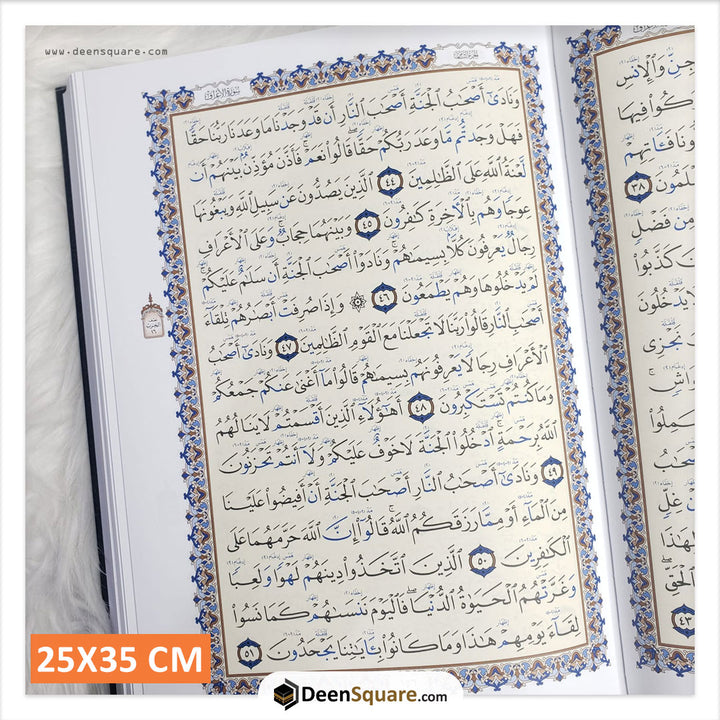 www.deensquare.com
سورة الأعراف
الجزء الثامن
وَنَادَىٰٓ أَصْحَٰبُ ٱلْجَنَّةِ أَصْحَٰبَ ٱلنَّارِ أَن قَدْ وَجَدْنَا مَا وَعَدَنَا رَبُّنَا حَقًّا
فَهَلْ وَجَدتُّم مَّا وَعَدَ رَبُّكُمْ حَقًّا قَالُوا۟ نَعَمْ ۚ فَأَذَّنَ مُؤَذِّنٌۢ بَيْنَهُمْ أَن
لَّعْنَةُ ٱللَّهِ عَلَى ٱلظَّٰلِمِينَ ٤٤ ٱلَّذِينَ يَصُدُّونَ عَن سَبِيلِ ٱللَّهِ وَيَبْغُونَهَا
عِوَجًا وَهُم بِٱلْـَٔاخِرَةِ كَٰفِرُونَ ٤٥ وَبَيْنَهُمَا حِجَابٌ ۚ وَعَلَى ٱلْأَعْرَافِ
رِجَالٌ يَعْرِفُونَ كُلًّۢا بِسِيمَىٰهُمْ ۚ وَنَادَوْا۟ أَصْحَٰبَ ٱلْجَنَّةِ أَن سَلَٰمٌ عَلَيْكُمْ ۚ
لَمْ يَدْخُلُوهَا وَهُمْ يَطْمَعُونَ ٤٦ ۞ وَإِذَا صُرِفَتْ أَبْصَٰرُهُمْ تِلْقَآءَ
أَصْحَٰبِ ٱلنَّارِ قَالُوا۟ رَبَّنَا لَا تَجْعَلْنَا مَعَ ٱلْقَوْمِ ٱلظَّٰلِمِينَ ٤٧ وَنَادَىٰٓ أَصْحَٰبُ
ٱلْأَعْرَافِ رِجَالًا يَعْرِفُونَهُم بِسِيمَىٰهُمْ قَالُوا۟ مَآ أَغْنَىٰ عَنكُمْ جَمْعُكُمْ
وَمَا كُنتُمْ تَسْتَكْبِرُونَ ٤٨ أَهَٰٓؤُلَآءِ ٱلَّذِينَ أَقْسَمْتُمْ لَا يَنَالُهُمُ
ٱللَّهُ بِرَحْمَةٍ ۚ ٱدْخُلُوا۟ ٱلْجَنَّةَ لَا خَوْفٌ عَلَيْكُمْ وَلَآ أَنتُمْ تَحْزَنُونَ
٤٩ وَنَادَىٰٓ أَصْحَٰبُ ٱلنَّارِ أَصْحَٰبَ ٱلْجَنَّةِ أَنْ أَفِيضُوا۟ عَلَيْنَا
مِنَ ٱلْمَآءِ أَوْ مِمَّا رَزَقَكُمُ ٱللَّهُ ۚ قَالُوٓا۟ إِنَّ ٱللَّهَ حَرَّمَهُمَا عَلَى
ٱلْكَٰفِرِينَ ٥٠ ٱلَّذِينَ ٱتَّخَذُوا۟ دِينَهُمْ لَهْوًا وَلَعِبًا
وَغَرَّتْهُمُ ٱلْحَيَوٰةُ ٱلدُّنْيَا ۚ فَٱلْيَوْمَ نَنسَىٰهُمْ كَمَا نَسُوا۟
لِقَآءَ يَوْمِهِمْ هَٰذَا وَمَا كَانُوا۟ بِـَٔايَٰتِنَا يَجْحَدُونَ ٥١
جِنِّ وَٱلْإِنسِ
كُوا۟ فِيهَا
٣٨
مِن فَضْلٍ
نَ كَذَّبُوا۟
لَا يَدْخُلُونَ
نَجْزِى
عَمِلُوا۟
صْحَٰبُ
مِّنْ غِلٍّ
لِهَٰذَا
ٱلْحَقِّ
٤٣
25X35 CM
DeenSquare.com